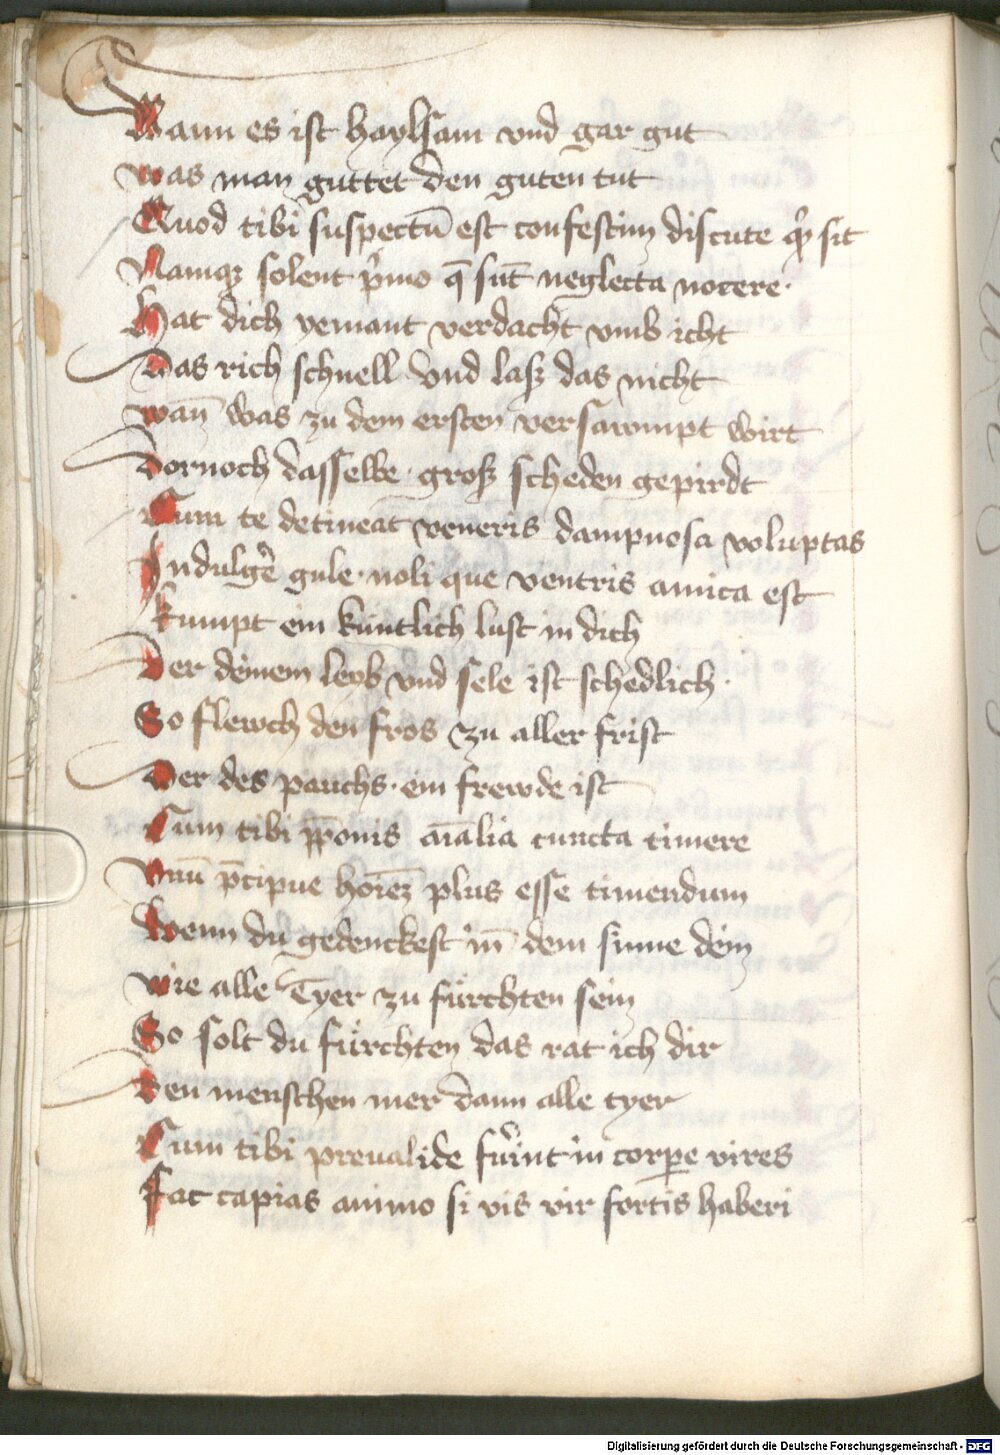 Wann es ist haylsam vnd gar gut
was man guttet den guten tut
Quod tibi suspectū est confestim discute qͥ sit
Namqꝫ solent pͥmo q̄ sūt neglecta nocere·
Hat dich yemant verdacht vmb icht
Das rich schnell vnd laß das nicht
wañ was zu dem ersten versawmpt wirt
Dornoch dasselbe · groß scheden gepirdt
Cum te detineat veneris dampnosa voluptas
Indulgē gule · noli que ventris amica est
kumpt ein küntlich lust in dich
Der deinem leyb vnd sele ist schedlich ·
So flewch den fros zu aller frist
Der des pauchs · ein frewde ist
Cum tibi ꝓponis aīalia cuncta timere
Vnū p̄cipue hoīeꝫ plus esse timendum
Wenn du gedenckest in dem sinne dein
wie alle Tyer zu fürchten sein
So solt du fürchten das rat ich dir
Den menschen mer dann alle tyer
Cum tibi preualide fu͛int in corꝑe vires
Fac capias animo si vis vir fortis haberi
Digitalisierung gefördert durch die Deutsche Forschungsgemeinschaft - DFG